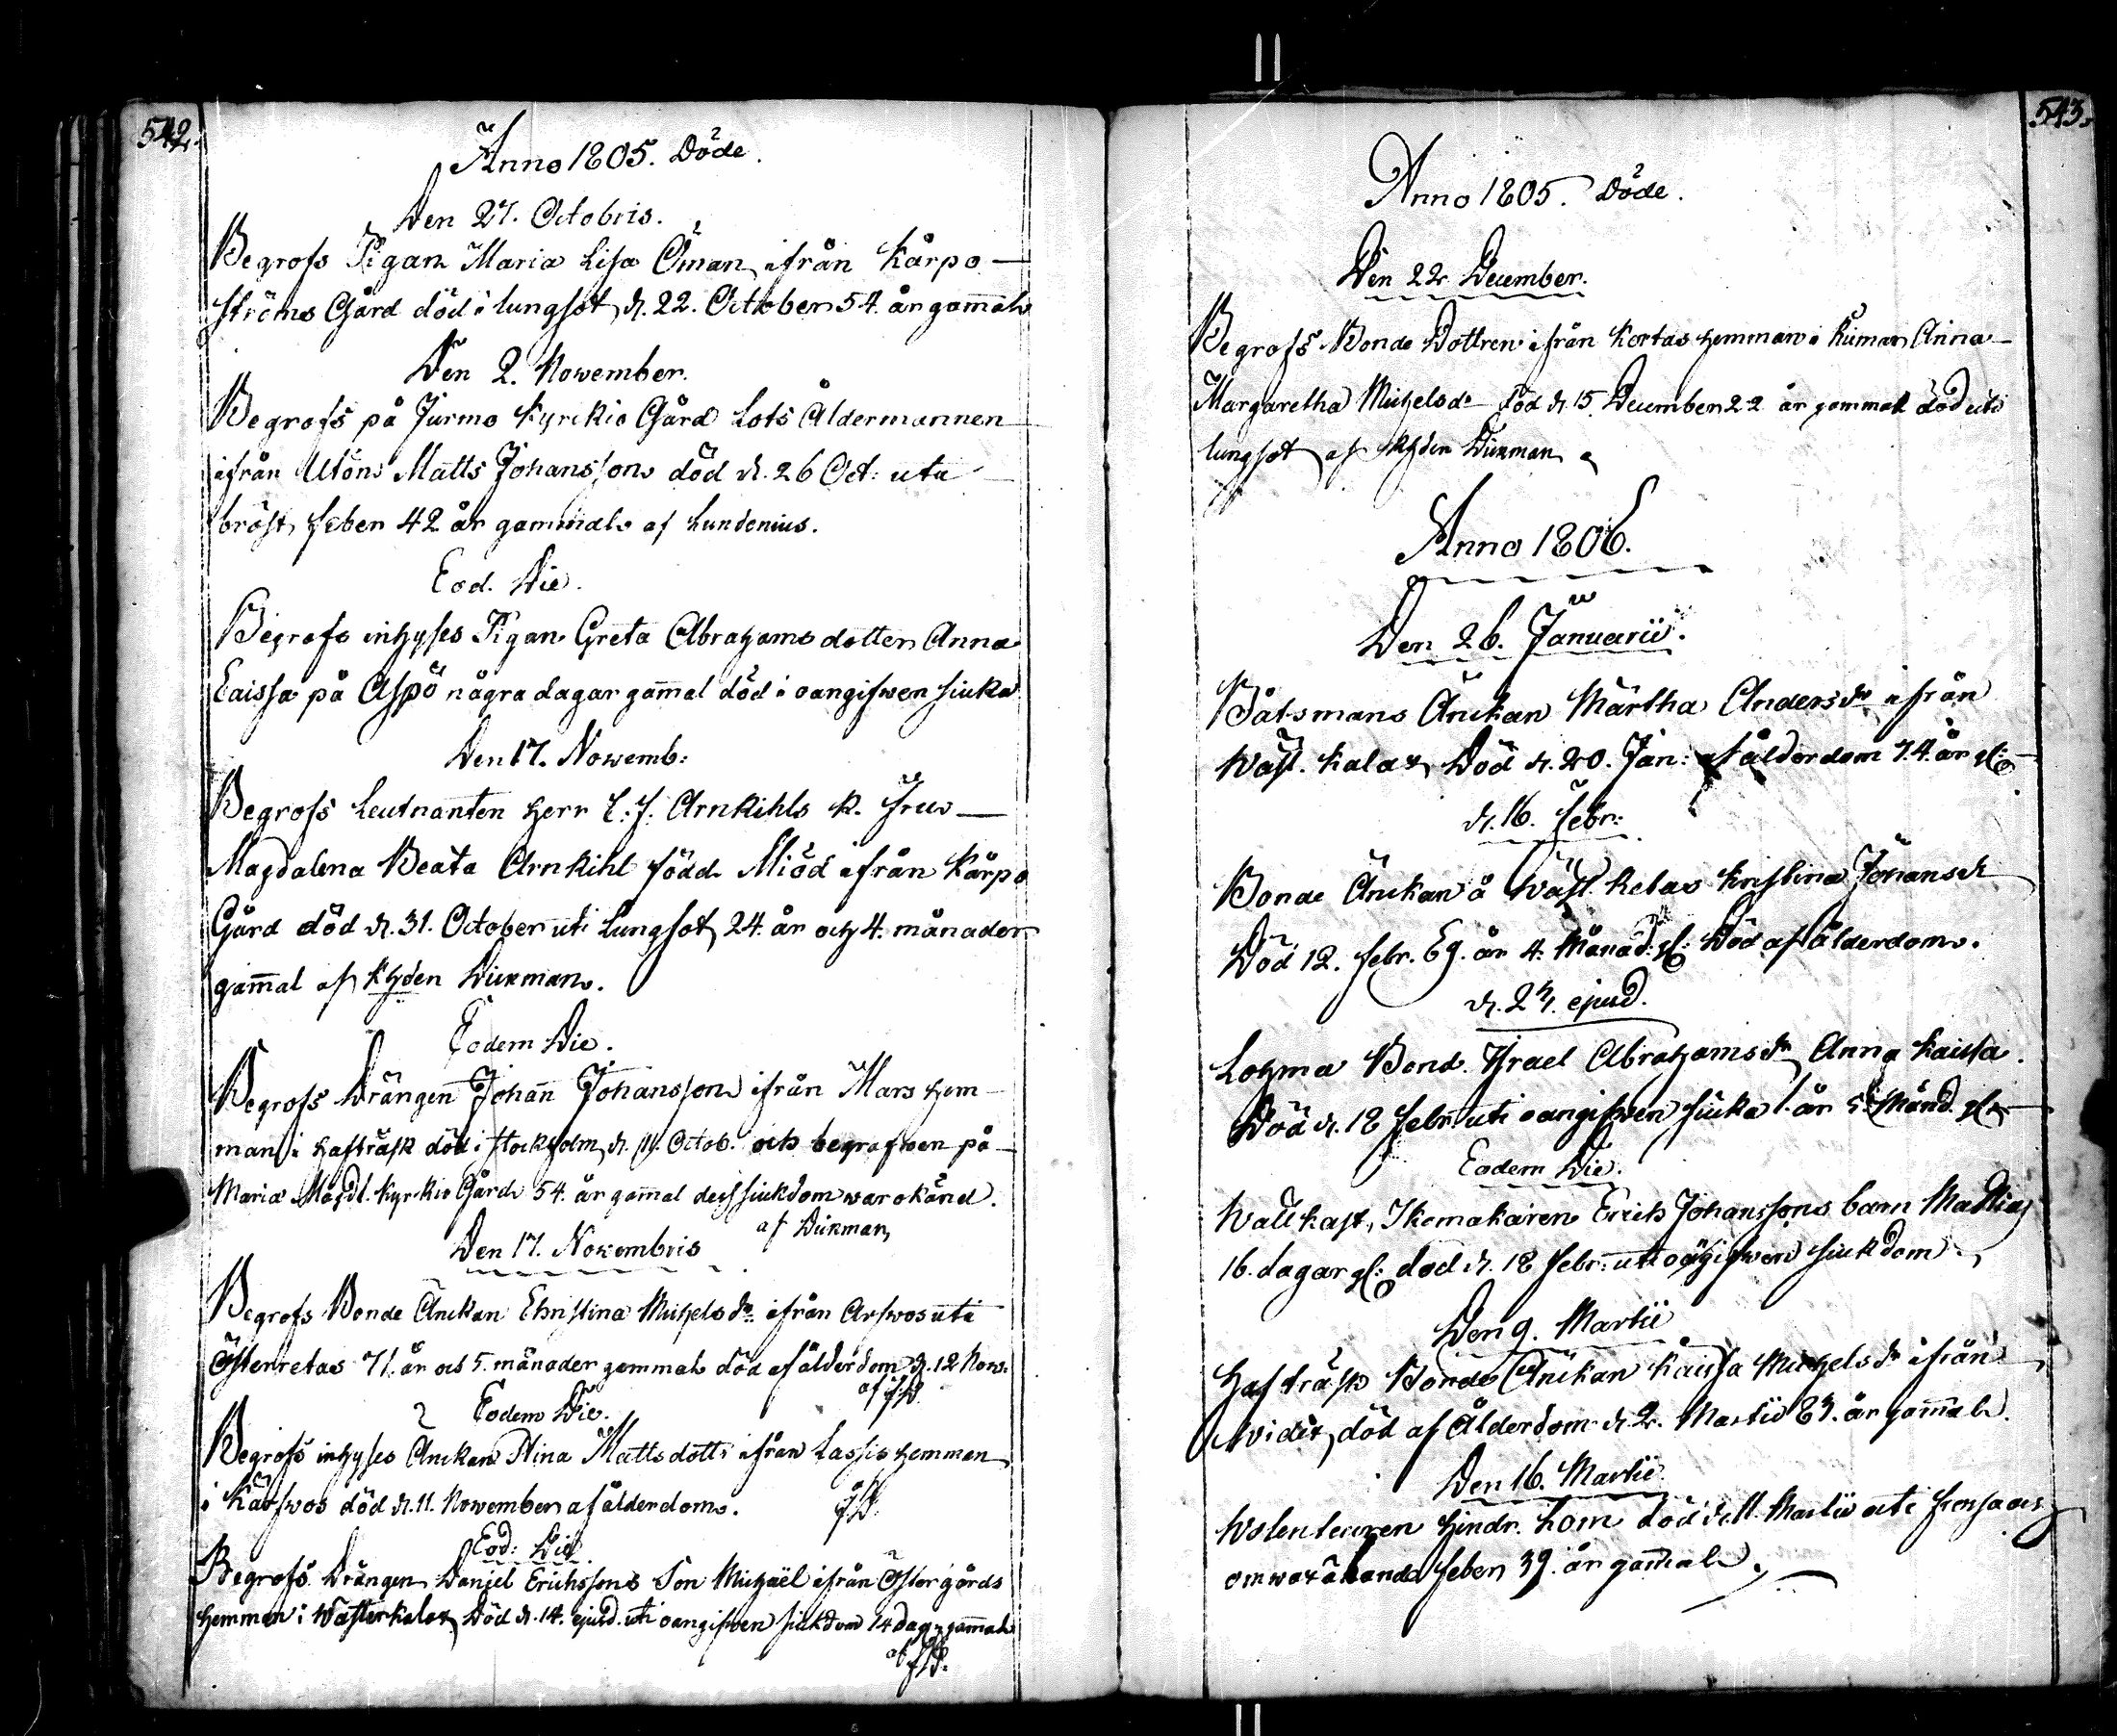 542.
Anno 1805. Döde.
Den 27. Octobris.
Begrofs Pigan Maria Lisa Öman ifrån Kårpo
ströms Gård död i lungsot d. 22. October 54. år gam̄al
Den 2. November.
Begrofs på Jurmo Kyrckio Gård Lots Åldermannen
ifrån Utön Matts Johansson död d. 26 Oct: uta
bröst feber 42 år gammal af Lundenius.
Eod. Die.
Begrofs inhyses Pigan Greta Abrahams dotter Anna
Caissa på Aspö några dagar gam̄al död i oangifwen siuka
Den 17. Novemb:
Begrofs Leutnanten Herr C. J. Arnkihls K. Fru
Magdalena Beata Arnkihl född Miöd ifrån Kårpo
Gård död d. 31. October uti Lungsot, 24. år och 4. månader
gam̄al af Dikman.
Eodem Die.
Begrofs Drängen Johan Johansson ifrån Mars hem-
man i Hafträsk död i Stockholm d. 11. Octob. och begrafwen på
Maria Magdl. Kyrckio Gård 54. år gam̄al dess siukdom war okänd.
af Dikman
Den 17. Novembris
Begrofs Bonde Änckan Christina Michelsdr ifrån uti
Österretas 71. år och 5. månader gammal död af ålderdom d. 12 Nov:
af JD.
Eodem Die.
Begrofs inhyses Änckan Stina Matts dottr ifrån Lassis hemman
i Kårfwos död d. 11. November af ålderdom. JD.
Eod: Die
Begrofs Drängen Daniel Erichssons Son Michaël ifrån Östergårds
hemman i Wästerkalax Död d. 14. ejusd. uti oangifwen siukdom 14 dag gam̄al
af JD.
543.
Anno 1805. Döde.
Den 22 December.
Begrofs Bonde Dottren ifrån Kortas hemman i Kiman Anna
Margaretha Michelsdr död d. 15. December 22 år gammal död uti
lungsot af Dikman
Anno 1806.
Den 26. Januarii.
Båtsmans Änckan Märtha Andersdr ifrån
Wäst. Kalax Död d. 20. Jan: af ålderdom 74. år gl:
d. 16. Febr:
Bonde Änckan å Wäst. Retas Kristina Jöransdr
Död 12. Febr. 69. år 4. Månad. gl: Död af ålderdom.
d. 23. ejusd.
Lohma Bond. Israel Abrahamsdr Anna Kaissa
Död d. 18 Febr. uti oangifwen siuka 1. år 5. Månd. gl:
Eodem Die.
Wallkast, Skomakaren Erich Johanssons barn Mattias
16. dagar gl: död d. 18 Febr: uti siukdom
Den 9. Martii
Hafträsk Bonde Änckan Kaissa Michelsdr ifrån
död af Ålderdom d. 2. Martii 83. år gam̄al.
Den 16. Martii
Hindr. Hom död d. 11. Martii uti
feber 39. år gam̄al.